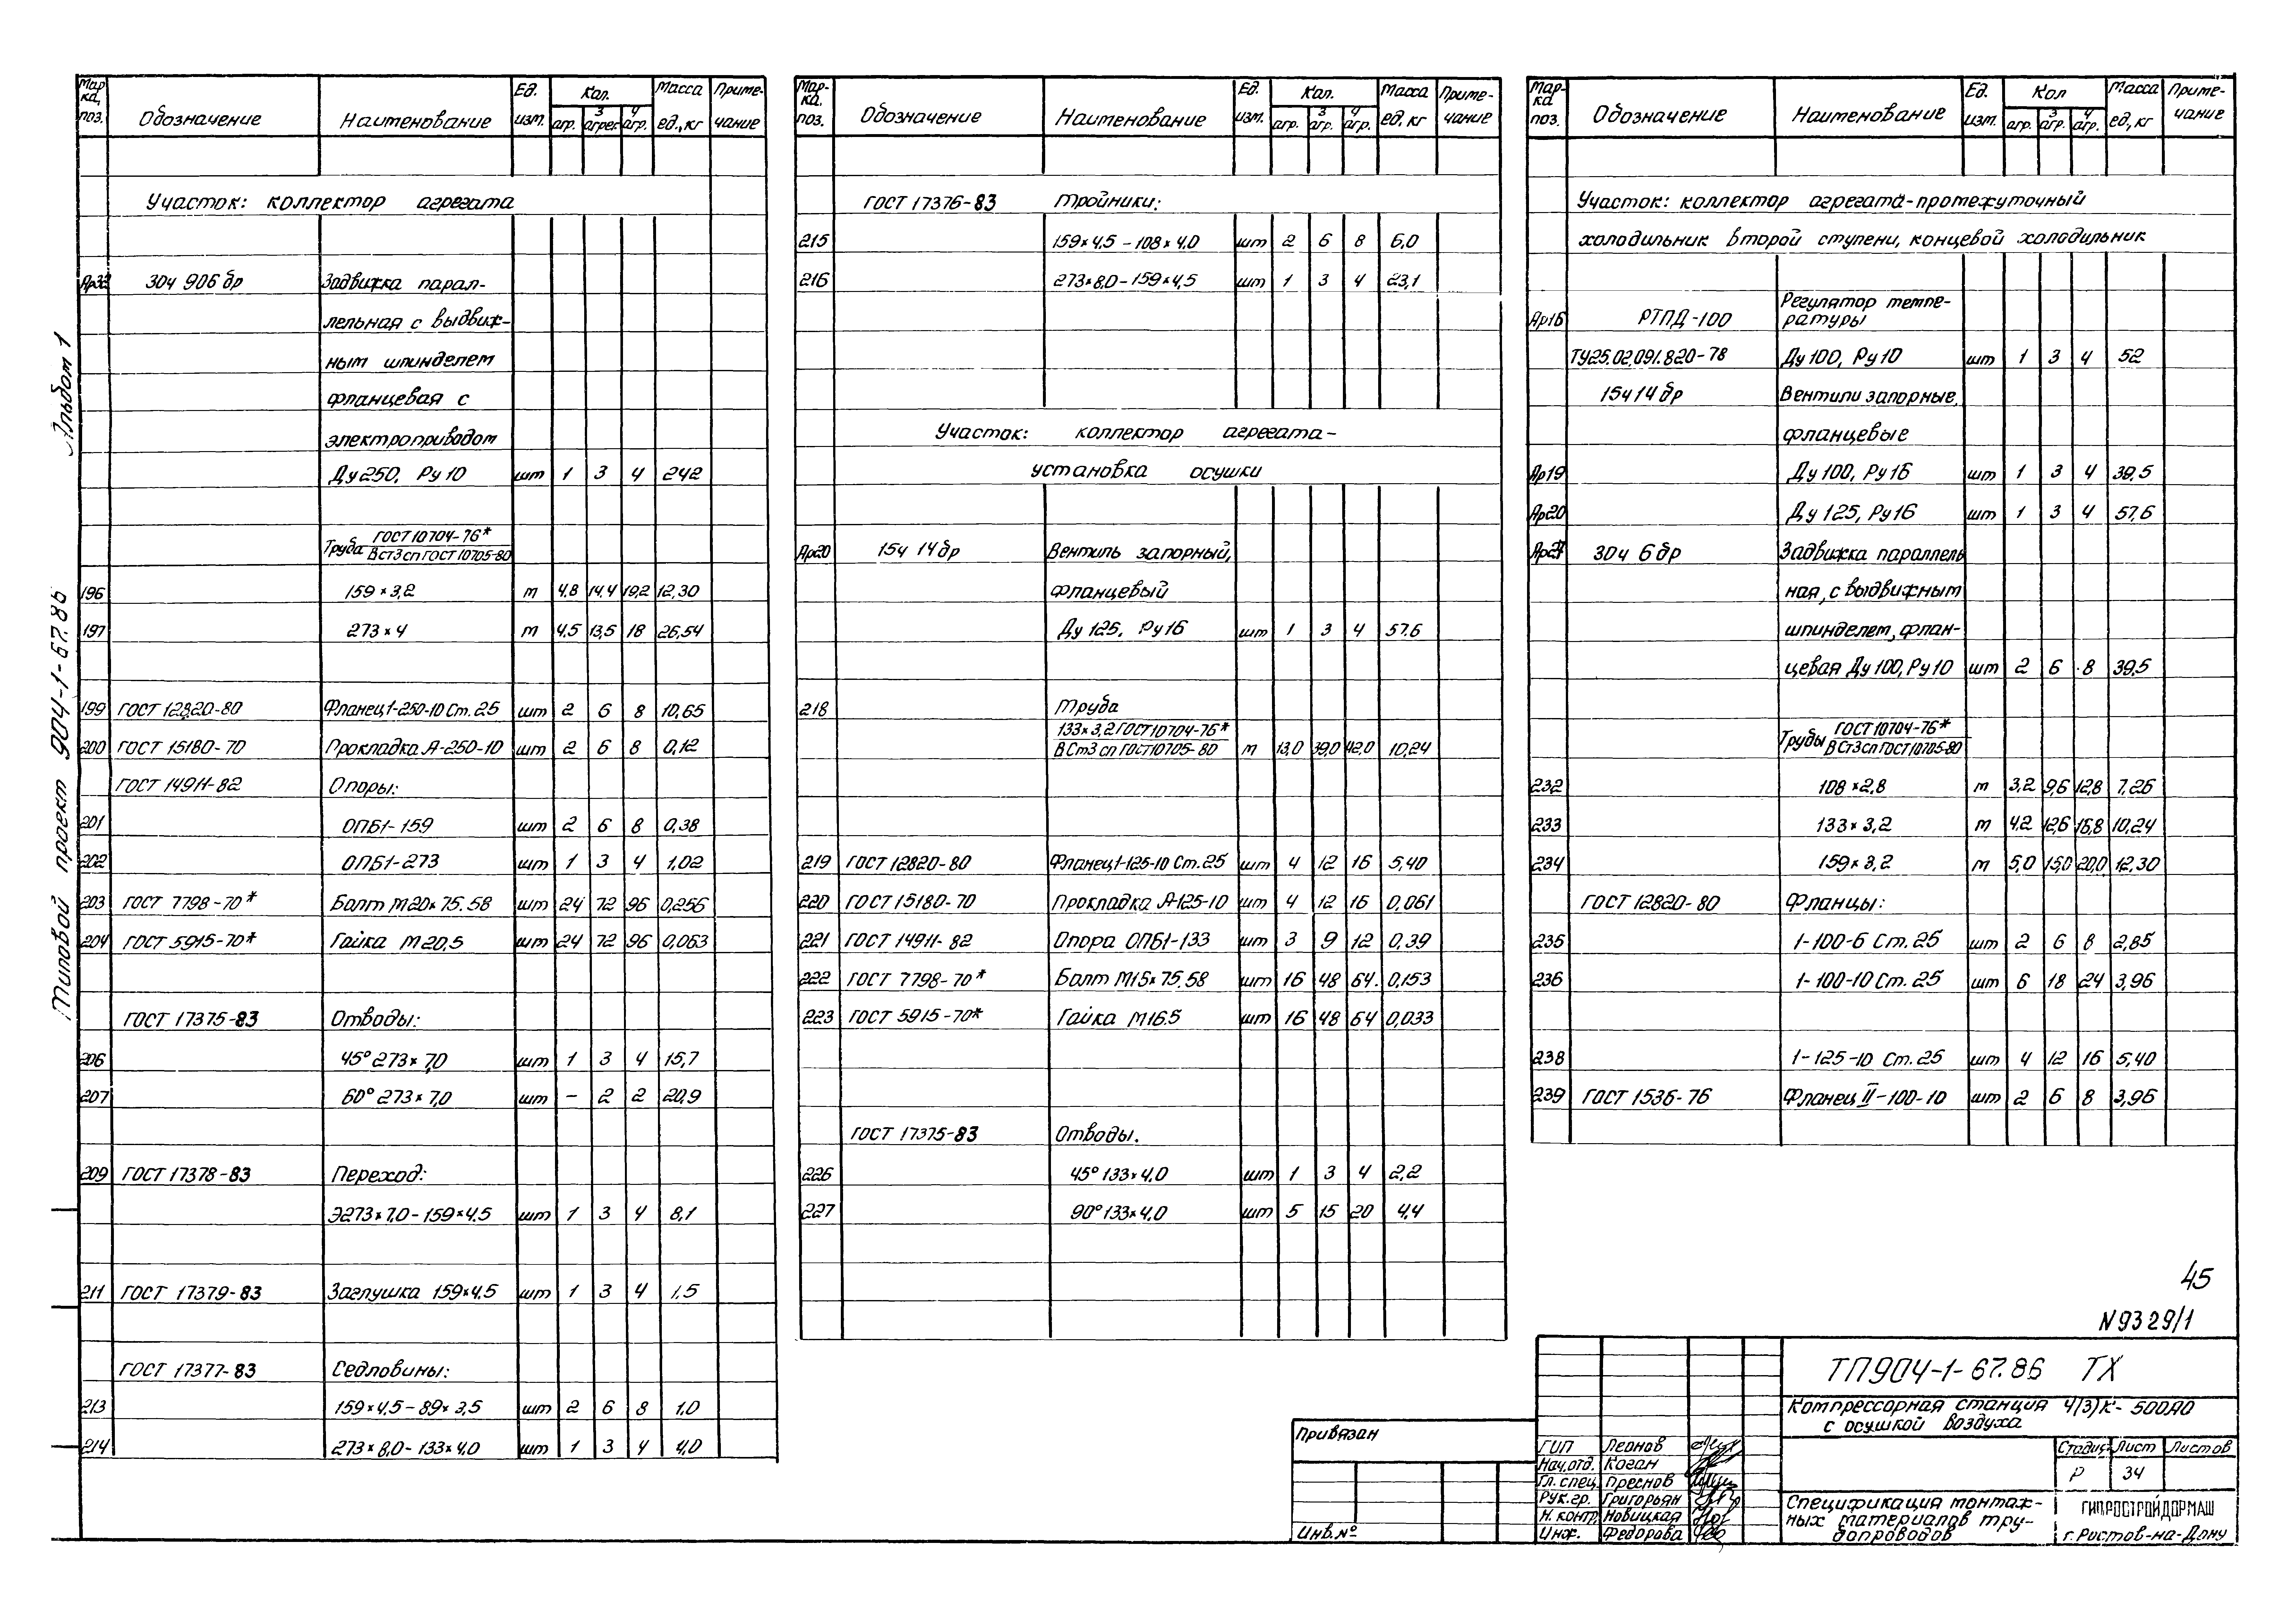 Альбом 1
Типовой проект 904-1-67.86
Марка, поз. Обозначение Наименование Ед. изм. Кол. Масса ед., кг Примечание
агр. 3 агрег. 4 агр.
Участок: коллектор агрегата
Ар32 30ч 906 бр Задвижка парал-
лельная с выдвиж-
ным шпинделем
фланцевая с
электроприводом
Ду 250, Ру 10 шт 1 3 4 242
Труба ГОСТ 10704-76*
В Ст3 сп ГОСТ 10705-80
196 159×3,2 м 4,8 14,4 19,2 12,30
197 273×4 м 4,5 13,5 18 26,54
199 ГОСТ 12820-80 Фланец 1-250-10 Ст. 25 шт 2 6 8 10,65
200 ГОСТ 15180-70 Прокладка А-250-10 шт 2 6 8 0,12
ГОСТ 14911-82 Опоры:
201 ОПБ1-159 шт 2 6 8 0,38
202 ОПБ1-273 шт 1 3 4 1,02
203 ГОСТ 7798-70* Болт М20×75.58 шт 24 72 96 0,256
204 ГОСТ 5915-70* Гайка М20.5 шт 24 72 96 0,063
ГОСТ 17375-83 Отводы:
206 45° 273×7,0 шт 1 3 4 15,7
207 60° 273×7,0 шт - 2 2 20,9
209 ГОСТ 17378-83 Переход:
Э273×7,0-159×4,5 шт 1 3 4 8,1
211 ГОСТ 17379-83 Заглушка 159×4,5 шт 1 3 4 1,5
ГОСТ 17377-83 Седловины:
213 159×4,5-89×3,5 шт 2 6 8 1,0
214 273×8,0-133×4,0 шт 1 3 4 4,0
Марка, поз. Обозначение Наименование Ед. изм. Кол. Масса ед, кг Примечание
агр. 3 агр. 4 агр.
ГОСТ 17376-83 Тройники:
215 159×4,5-108×4,0 шт 2 6 8 6,0
216 273×8,0-159×4,5 шт 1 3 4 23,1
Участок: коллектор агрегата-
установка осушки
Ар20 15ч 14бр Вентиль запорный,
фланцевый
Ду 125, Ру 16 шт 1 3 4 57,6
218 Труба
133×3,2 ГОСТ 10704-76*
В Ст3 сп ГОСТ 10705-80 м 13,0 39,0 42,0 10,24
219 ГОСТ 12820-80 Фланец 1-125-10 Ст. 25 шт 4 12 16 5,40
220 ГОСТ 15180-70 Прокладка А-125-10 шт 4 12 16 0,061
221 ГОСТ 14911-82 Опора ОПБ1-133 шт 3 9 12 0,39
222 ГОСТ 7798-70* Болт М16×75.58 шт 16 48 64. 0,153
223 ГОСТ 5915-70* Гайка М16.5 шт 16 48 64 0,033
ГОСТ 17375-83 Отводы.
226 45° 133×4,0 шт 1 3 4 2,2
227 90° 133×4,0 шт 5 15 20 4,4
Марка поз. Обозначение Наименование Ед. изм. Кол Масса ед, кг Примечание
агр. 3 агр. 4 агр.
Участок: коллектор агрегата-промежуточный
холодильник второй ступени, концевой холодильник
Регулятор темпе-
Ар16 РТПД-100 ратуры
ТУ25.02.091.820-78 Ду 100, Ру 10 шт 1 3 4 52
15ч 14 бр Вентили запорные,
фланцевые
Ар19 Ду 100, Ру 16 шт 1 3 4 39,5
Ар20 Ду 125, Ру 16 шт 1 3 4 57,6
30ч 6 бр Задвижка параллель
ная, с выдвижным
шпинделем, флан-
цевая Ду 100, Ру 10 шт 2 6 8 39,5
Трубы ГОСТ 10704-76*
В Ст3 сп ГОСТ 10705-80
232 108×2,8 м 3,2 9,6 12,8 7,26
233 133×3,2 м 4,2 12,6 16,8 10,24
234 159×3,2 м 5,0 15,0 20,0 12,30
ГОСТ 12820-80 Фланцы:
235 1-100-6 Ст. 25 шт 2 6 8 2,85
236 1-100-10 Ст. 25 шт 6 18 24 3,96
238 1-125-10 Ст. 25 шт 4 12 16 5,40
239 ГОСТ 1536-76 Фланец II-100-10 шт 2 6 8 3,96
45
N9329/1
ТП904-1-67.86 ТХ
Компрессорная станция 4(3)К-500АО
с осушкой воздуха
Стадия Лист Листов
Р 34
Спецификация монтаж-
ных материалов тру-
бопроводов
ГИПРОСТРОЙДОРМАШ
г. Ростов-на-Дону
Привязан
Инв.№
ГИП Леонов
Нач.отд. Коган
Гл. спец. Преснов
Рук.гр. Григорьян
Н. контр. Новицкая
Инж. Федорова